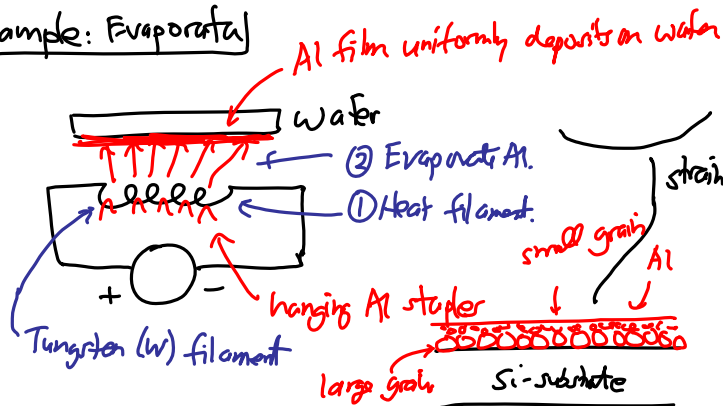 ample: Evaporata
Al film uniformly deposits on wafer
wafer
② Evaporate Al.
① Heat filament.
strain
small grain
Al
+ -
hanging Al staples
Tungsten (W) filament
large grain
Si-substrate